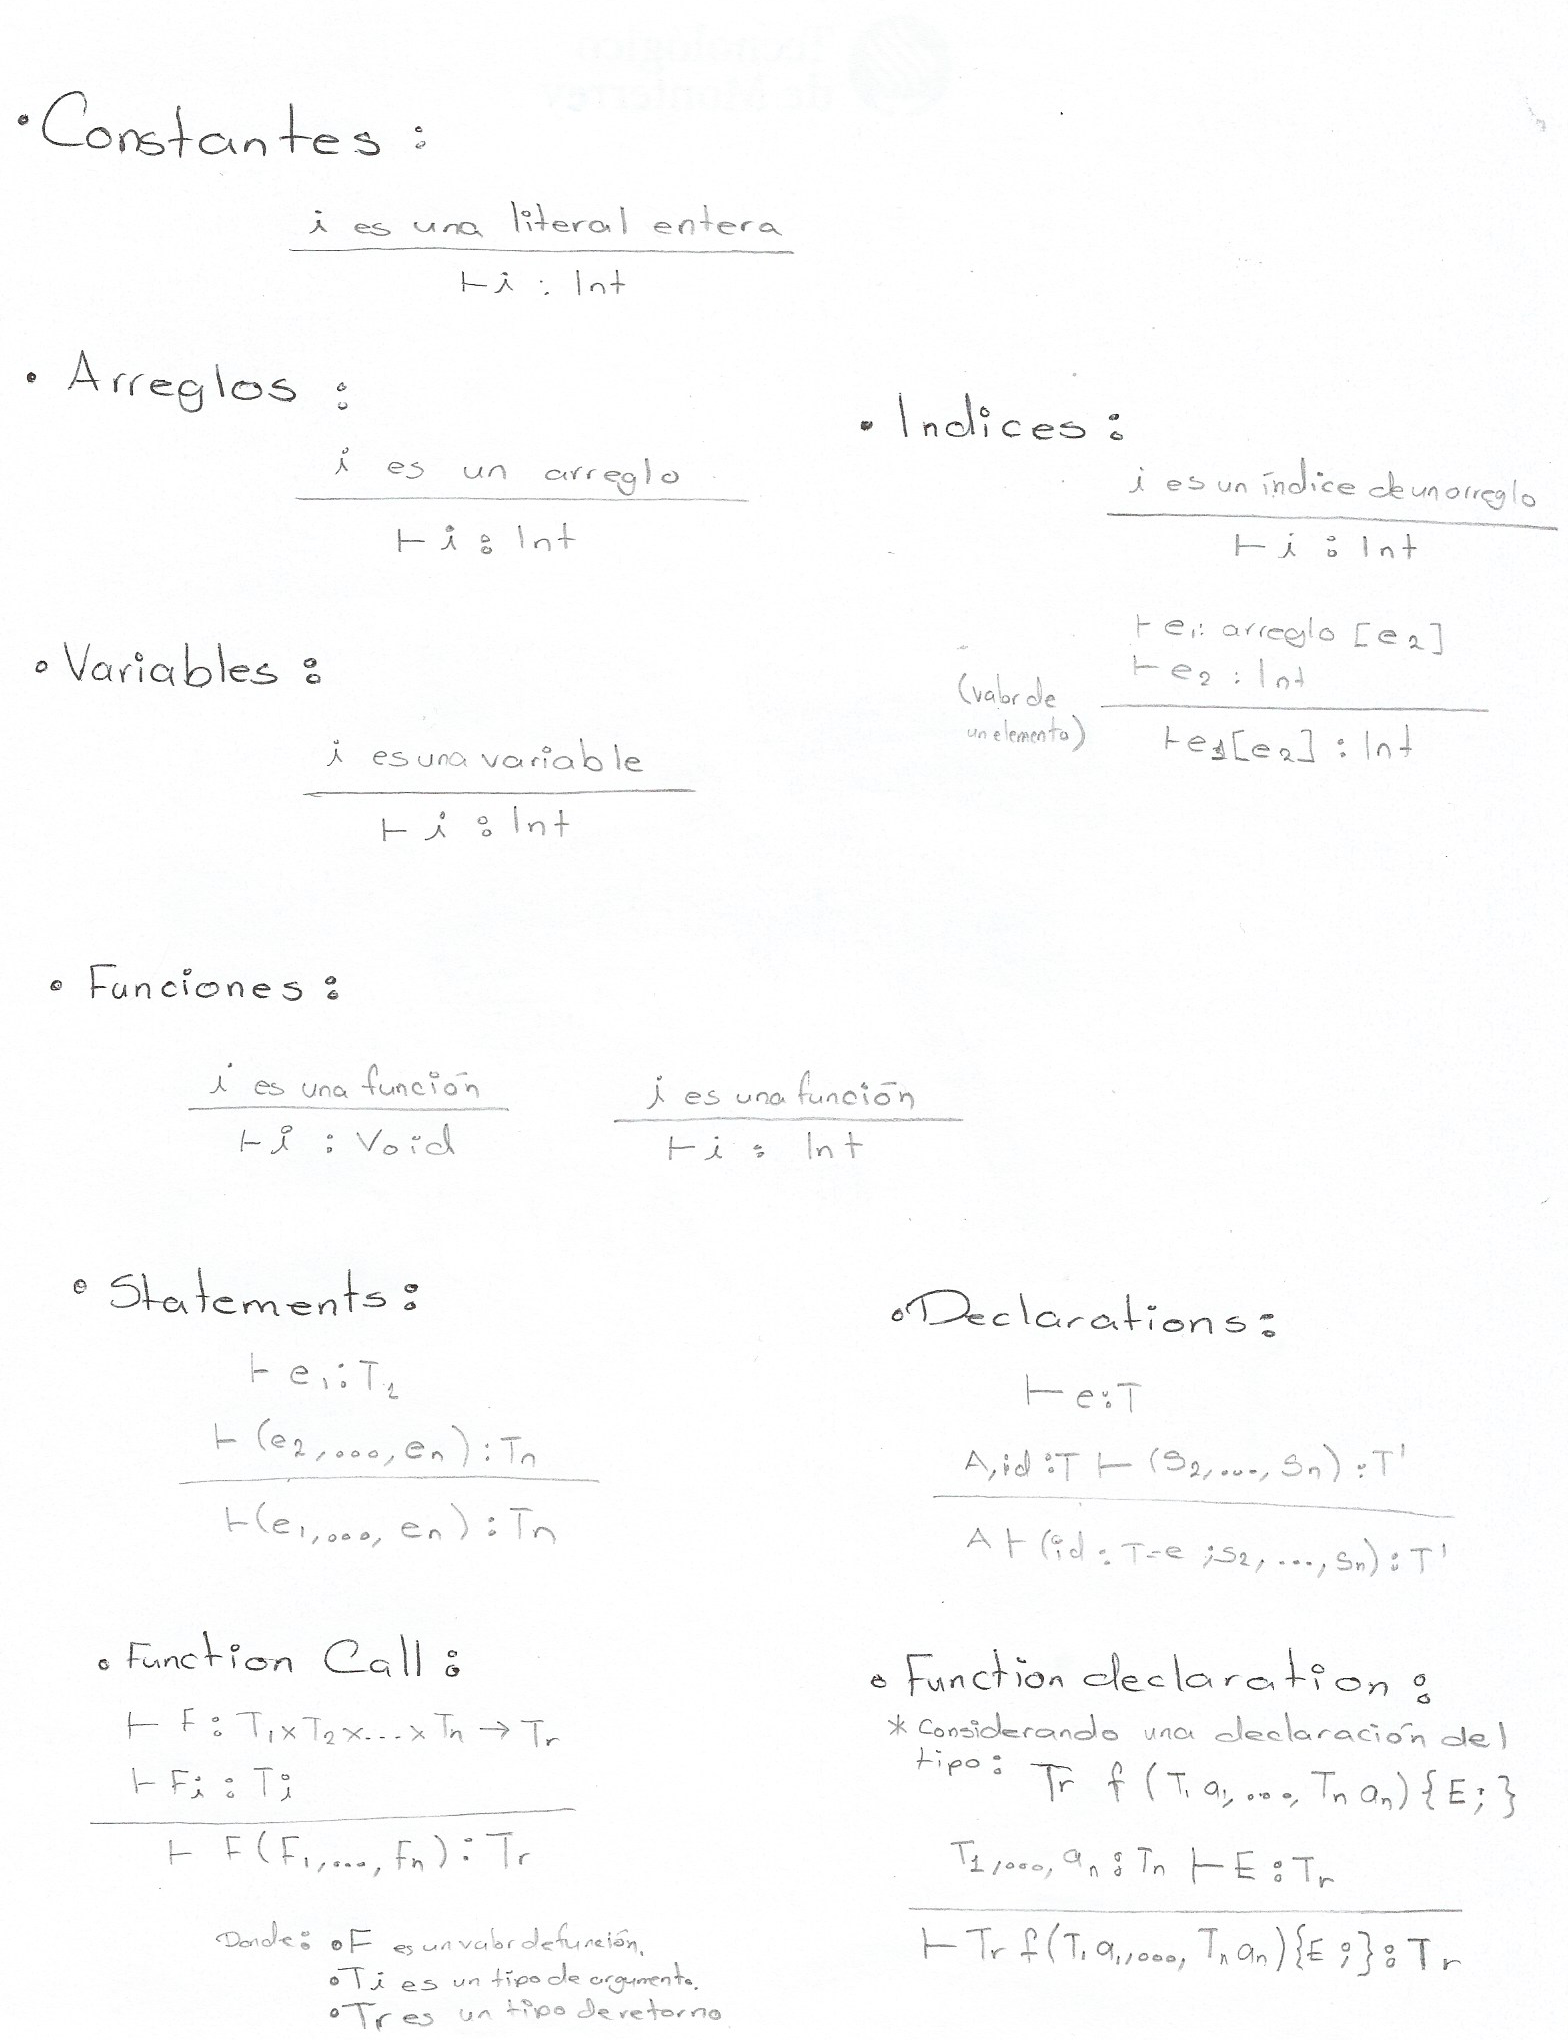 • Constantes :
i es una literal entera
⊢ i : Int
• Arreglos :
i es un arreglo
⊢ i : Int
• Indices :
i es un índice de un arreglo
⊢ i : Int
⊢ e₁: arreglo [e₂]
⊢ e₂ : Int
(valor de
un elemento)
⊢ e₁[e₂] : Int
• Variables :
i es una variable
⊢ i : Int
• Funciones :
i es una función
⊢ i : Void
i es una función
⊢ i : Int
• Statements :
⊢ e₁ : T₁
⊢ (e₂,..., en) : Tn
⊢ (e₁,..., en) : Tn
• Declarations :
⊢ e : T
A, id : T ⊢ (S₂,..., Sn) : T'
A ⊢ (id : T = e ; S₂, ..., Sn) : T'
• Function Call :
⊢ F : T₁ x T₂ x ... x Tn → Tr
⊢ Fi : Ti
⊢ F(F₁,..., Fn) : Tr
Donde : • F es un valor de función.
• Ti es un tipo de argumento.
• Tr es un tipo de retorno
• Function declaration :
* Considerando una declaración del
tipo : Tr f (T₁ a₁,..., Tn an) {E;}
T₁,..., an : Tn ⊢ E : Tr
⊢ Tr f(T₁ a₁,..., Tn an){E ;} : Tr